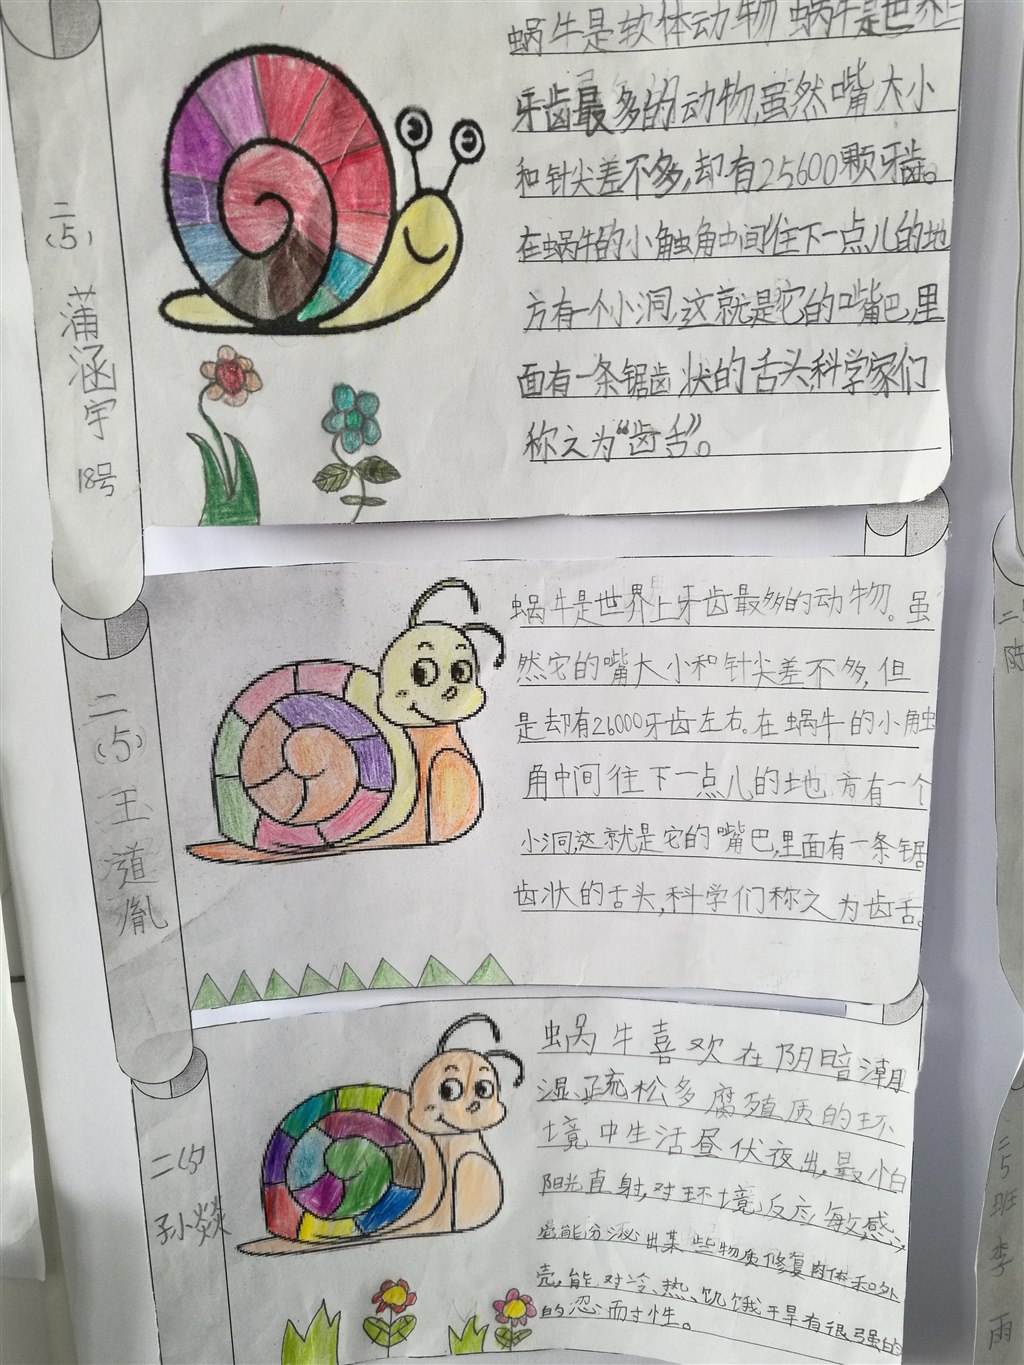 二
(5)
蒲涵宇
18号
蜗牛是软体动物 蜗牛是世界
牙齿最多的动物,虽然嘴大小
和针尖差不多,却有25600颗牙齿。
在蜗牛的小触角中间往下一点儿的地
方有一个小洞,这就是它的嘴巴,里
面有一条锯齿状的舌头科学家们
称之为“齿舌”。
二
(5)
王道胤
蜗牛是世界上牙齿最多的动物。虽
然它的嘴大小和针尖差不多,但
是却有26000牙齿左右。在蜗牛的小触
角中间往下一点儿的地方有一个
小洞,这就是它的嘴巴,里面有一条锯
齿状的舌头,科学们称之为齿舌。
二(5)
孙燚
蜗牛喜欢在阴暗潮
湿、疏松多腐殖质的环
境中生活昼伏夜出,最怕
阳光直射,对环境反应敏感,
能分泌出某些物质修复肉体和外
壳,能对冷、热、饥饿干旱有很强的
的忍耐性。
二5班李雨